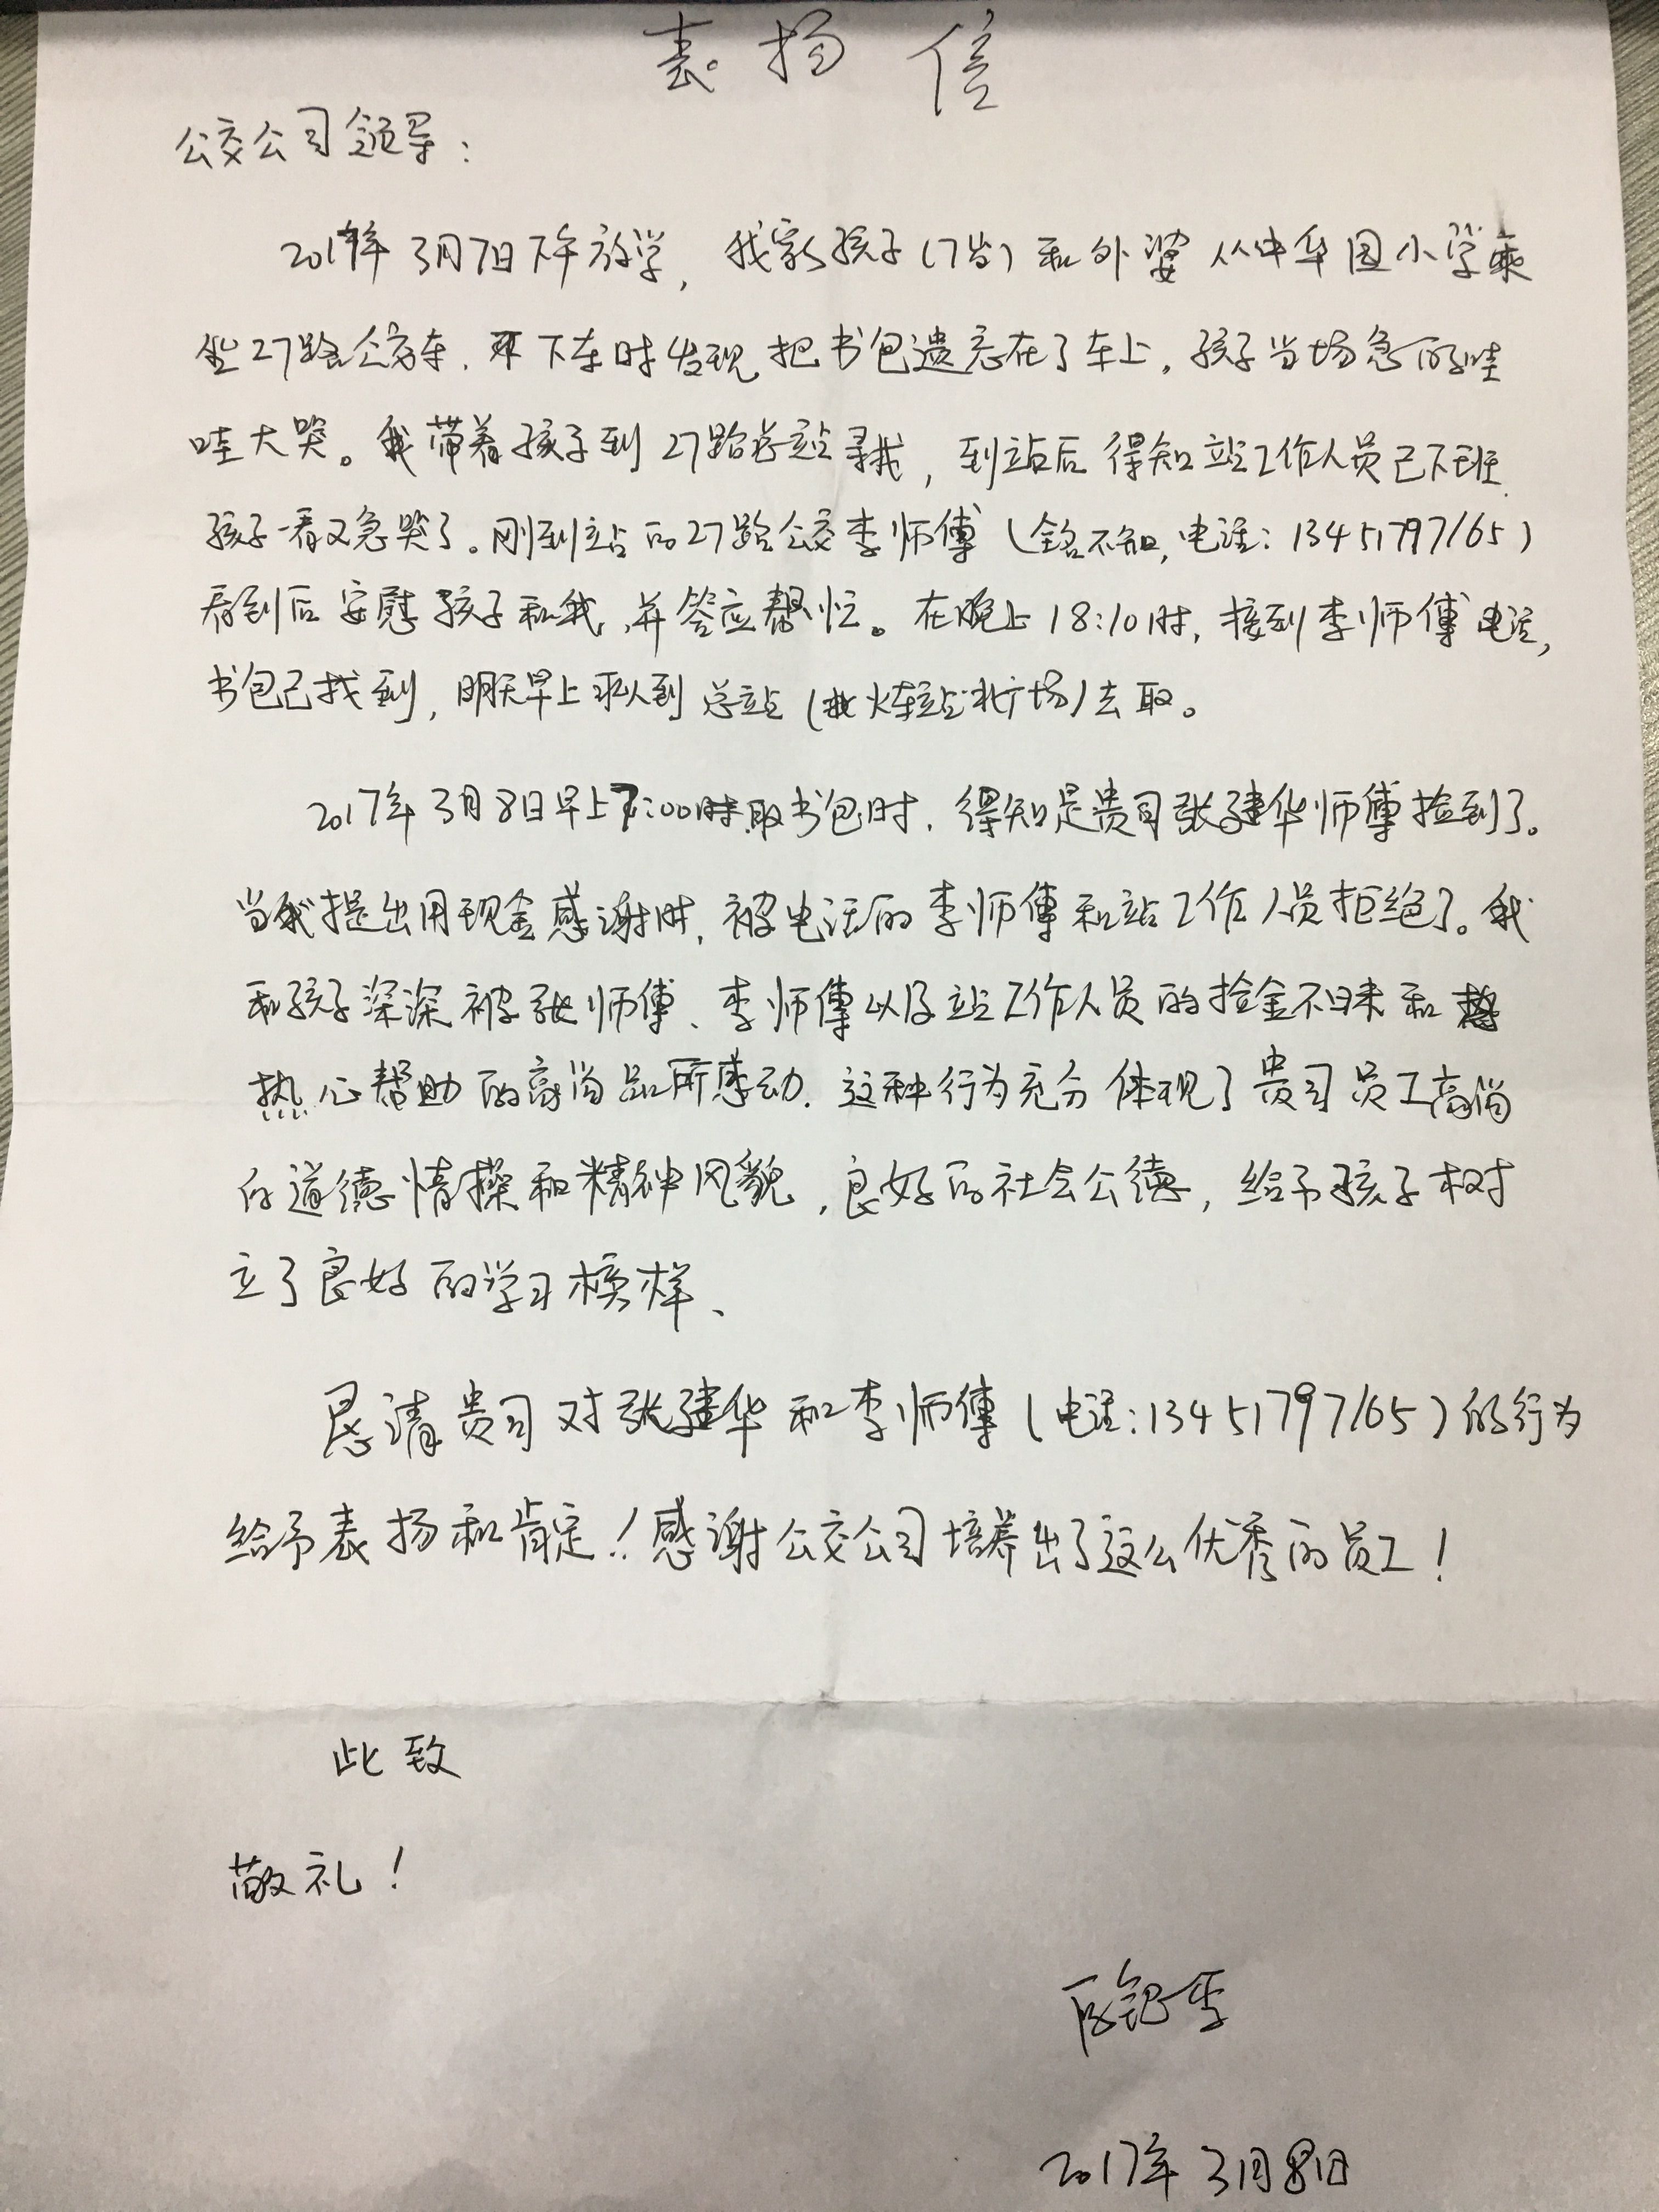 表扬信
公交公司领导：
2017年3月7日下午放学，我家孩子（7岁）和外婆从中华园小学乘
坐27路公交车，下车时发现把书包遗忘在了车上。孩子当场急的哇
哇大哭。我带着孩子到27路总站寻找，到站后得知站工作人员已下班
孩子一看又急哭了。刚到站的27路公交李师傅（全名不知，电话：13451797165）
看到后安慰孩子和我，并答应帮忙。在晚上18:10时，接到李师傅电话，
书包已找到，明天早上派人到总站（火车站北广场）去取。
2017年3月8日早上7:00时取书包时，得知是贵司张建华师傅捡到了。
当我提出用现金感谢时，被电话的李师傅和站工作人员拒绝了。我
和孩子深深被张师傅、李师傅以及站工作人员的捡金不昧和
热心帮助的高尚品所感动．这种行为充分体现了贵司员工高尚
的道德情操和精神风貌，良好的社会公德，给予孩子树
立了良好的学习榜样、
恳请贵司对张建华和李师傅（电话：13451797165）的行为
给予表扬和肯定！感谢公交公司培养出了这么优秀的员工！
此致
敬礼！
2017年3月8日